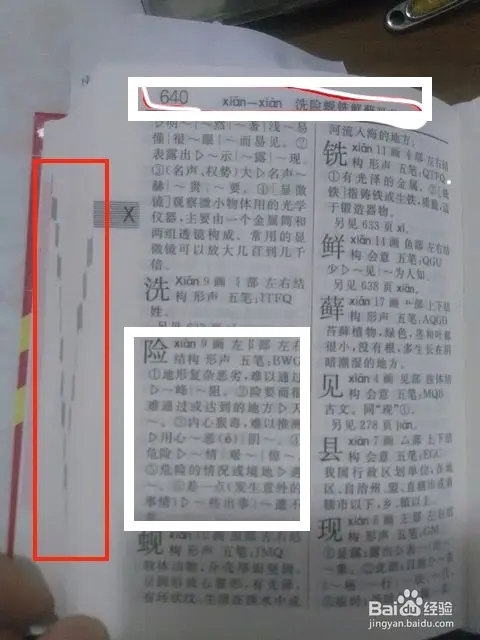 640 xiǎn—xiàn 洗险蚬铣鲜藓
▷明~|~然|~著|浅~易
懂|很~眼|~而易见。②
表露出▷~示|~露|~现。
③(名声、权势)大▷名声~
赫|~贵|~要。④[显微
镜]观察微小物体用的光学
仪器,主要由一个金属筒和
两组透镜构成。常用的显
微镜可以放大几百到几千
倍。
洗 Xiǎn 9画 氵部 左右结
构 形声 五笔:ITFQ
姓。
险 xiǎn 9画 左阝部 左右
结构 形声 五笔:BWG
①地形复杂恶劣,难以通过
▷~峰|~阻。②险要而很
难通过或达到的地方▷天
~。③内心狠毒,难以推测
▷用心~恶(è)|阴~。④
危险▷~情|艰~|惊~
⑤危险的情况或境地▷遇
~。⑥差一点(发生意外的
事情)▷~些出事|~遭不
蚬 xiǎn 10画 虫部 左右结
构 形声 五笔:JMQ
软体动物,介壳厚而坚固,
呈圆形或心脏形,有光泽,
有环状纹,生活在淡水中或
X
河流入海的地方。
铣 xiǎn 11画 钅部 左右结
构 形声 五笔:QTFQ
①有光泽的金属。②[铣
铁]指铸铁或生铁,质脆,适
于锻造器物。
另见 633 页 xǐ。
鲜 xiǎn 14画 鱼部 左右结
构 会意 五笔:QGU
少▷~见|~为人知。
另见 638 页 xiān。
藓 xiǎn 17画 艹部 上下结
构 形声 五笔:AQGD
苔藓植物,绿色,茎和叶都
很小,没有根,多生长在阴
暗潮湿的地方。
见 xiàn 4画 见部 独体结
构 会意 五笔:MQB
古文。同“现”①。
另见 278 页 jiàn。
县 xiàn 7画 厶部 上下结
构 会意 五笔:EGC
我国行政区划单位,在地
区、自治州、盟、直辖市或
辖市以下,乡、镇以上。
现 xiàn 8画 王部 左右结
构 形声 五笔:GM
Baidu 经验
jingyan.baidu.com